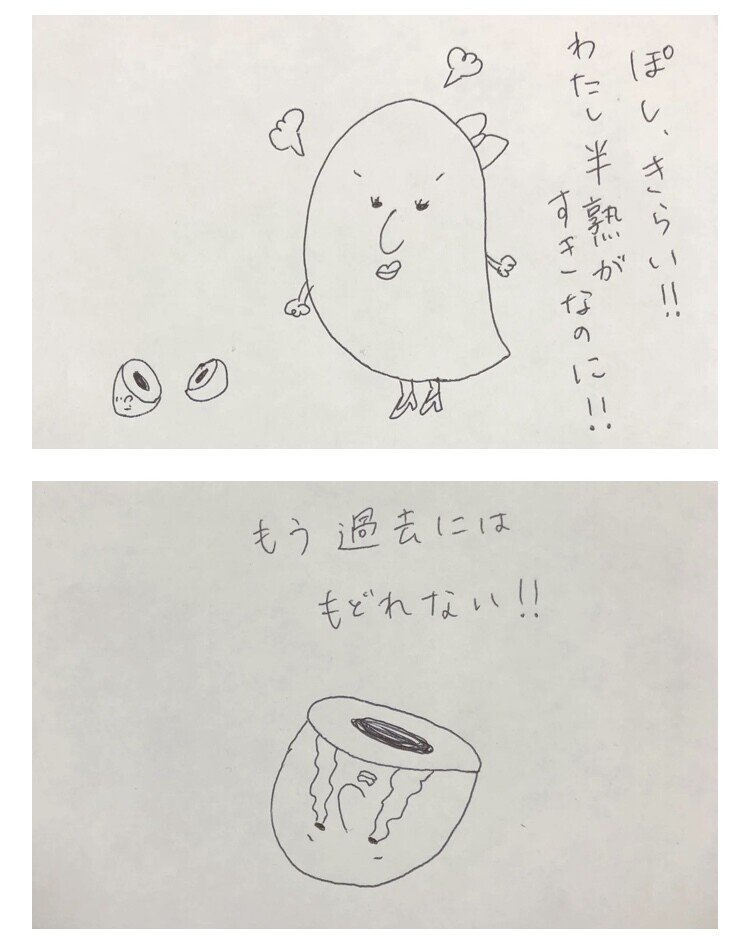 ぽし、きらい!!
わたし半熟が
すきなのに!!
もう過去には
もどれない!!